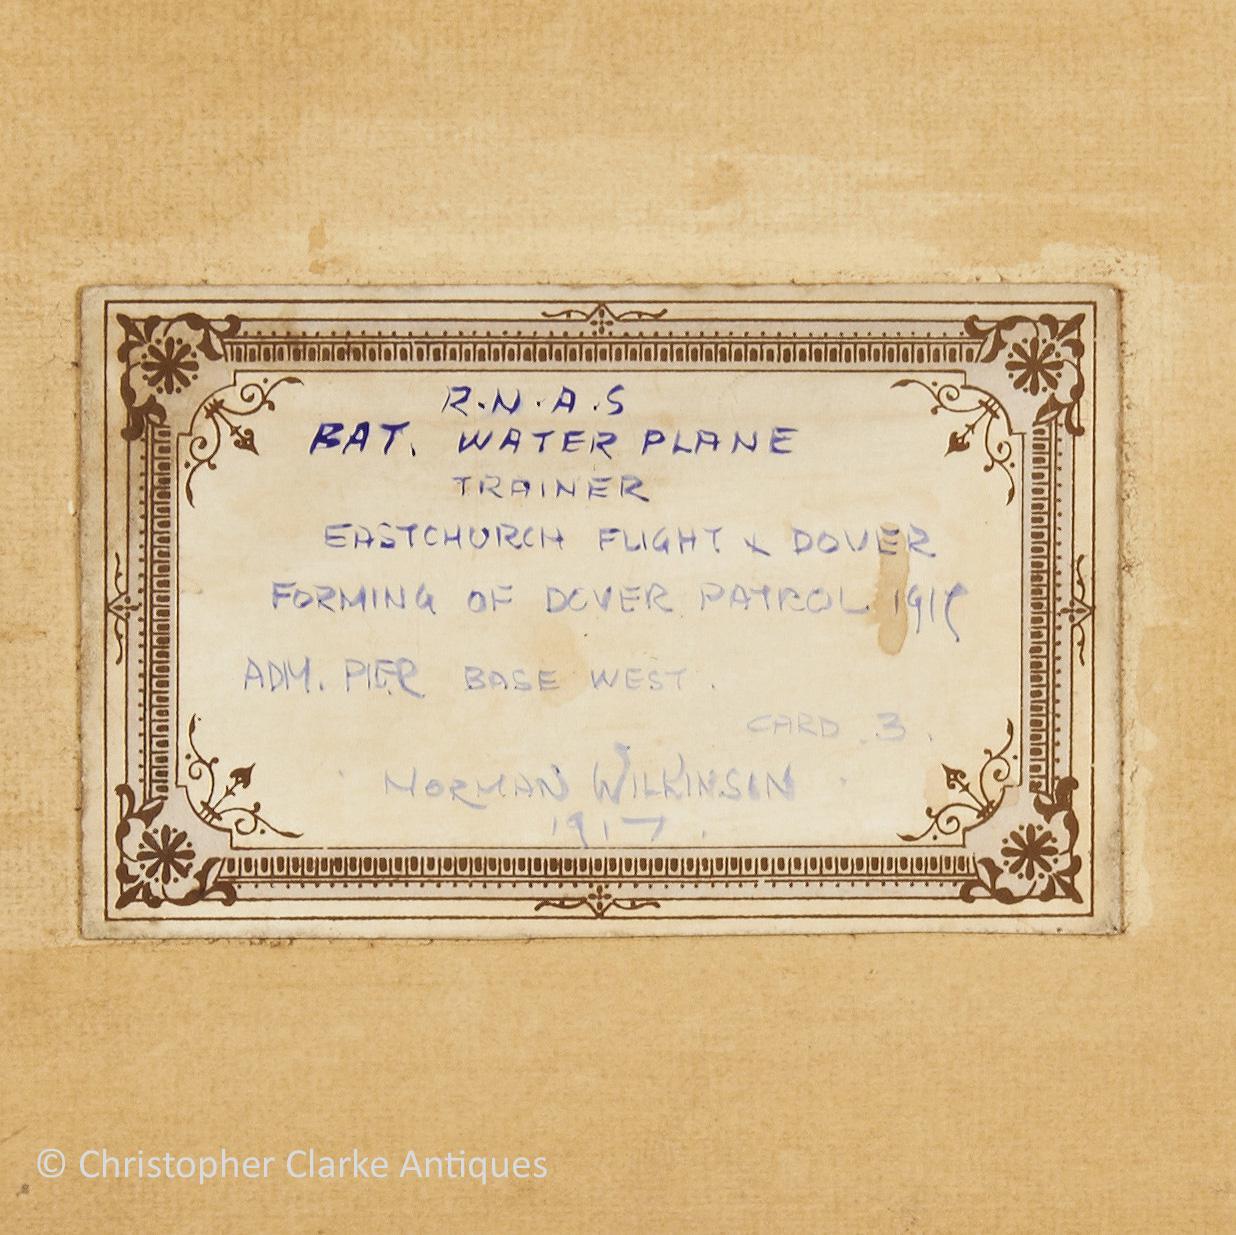 R.N.A.S
BAT. WATER PLANE
TRAINER
EASTCHURCH FLIGHT & DOVER
FORMING OF DOVER PATROL
ADM. PIER BASE WEST.
CARD 3.
NORMAN WILKINSON
1917.
© Christopher Clarke Antiques